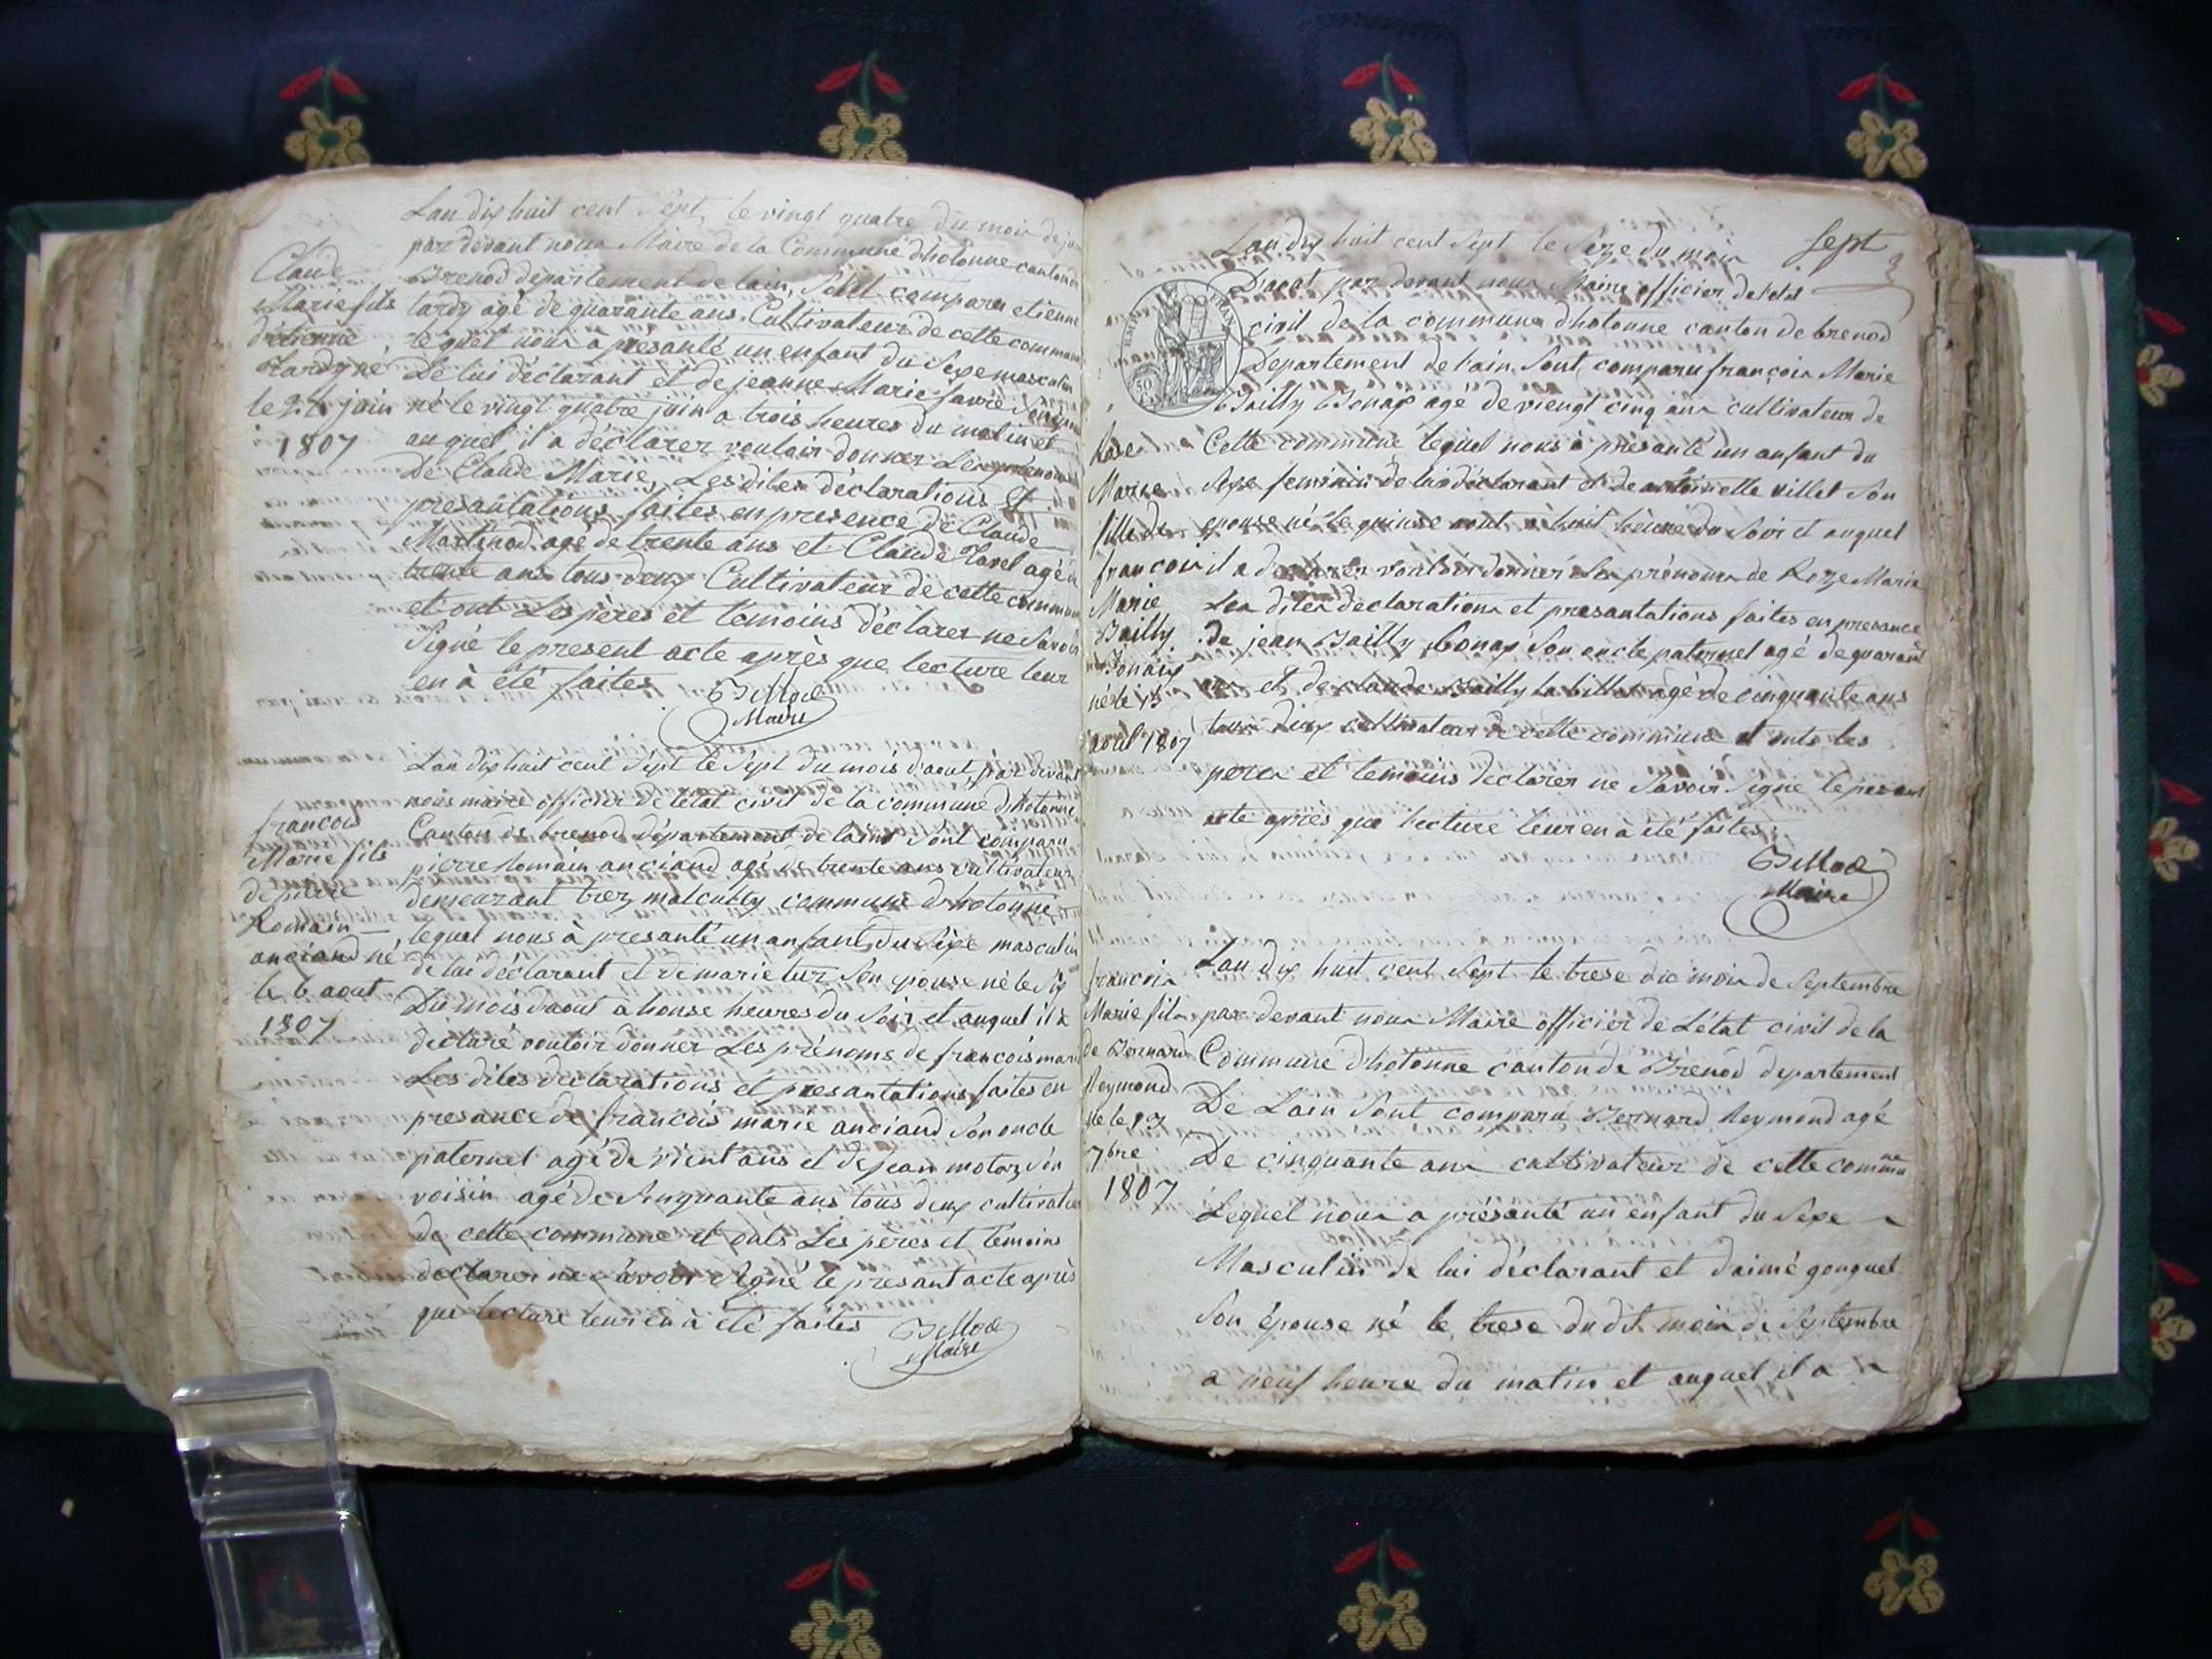 Lan dix huit cent sept, le vingt quatre du mois de juin
par devant nous Maire de la Commune dhotonne canton de
Brenod departement de lain, Sont comparu etienne
tardy agé de quarante ans Cultivateur de cette commune
lequel nous a presanté un enfant du Sexe masculin
de lui déclarant et de jeanne Marie favre Son epouse
né le vingt quatre juin a trois heures du matin et
auquel il a déclarer vouloir donner Les prénoms
De Claude Marie, Les dites déclarations et
presantations faites en presence de Claude
Martinod agé de trente ans et Claude Tavel agé de
trente ans tous deux Cultivateur de cette commune
et ont Les pères et témoins déclarer ne Savoir
Signé le present acte après que lecture leur
en à été faites
Maire
Claude
Marie fils
d'etienne
Tardy né
le 24 juin
1807
Lan dix huit cent Sept le Sept du mois d'aout, par devant
nous maire officier de létat civil de la commune dhotonne
Canton de brenod département de lain Sont comparu
pierre Romain anciand agé de trente ans Cultivateur
demeurant trez malcutty commune dhotonne
lequel nous à presanté un anfant du Sexe masculin
de lui déclarant et de marie tur Son epouse né le Six
Du mois daout à honse heures du Soir et auquel il à
déclaré vouloir donner Les prénoms de francois marie
Les dites declarations et presantations faites en
presance de francois marie anciand Son oncle
paternel agé de vient ans et de jean motaz Son
voisin agé de Sinquante ans tous deux cultivateur
de cette commune et onts Les pères et témoins
declarer ne Savoir Signé le presant acte après
que lecture leur en à été faites
Maire
francois
Marie fils
de pierre
Romain
anciand né
le 6 aout
1807
sept
Lan dix huit cent Sept le Seze du mois
D'aout par devant nous Maire officier de létat
civil de la commune dhotonne canton de brenod
Departement de l'ain Sont comparu françois Marie
Bailly Bonax agé de viengt cinq ans cultivateur de
Cette commune lequel nous à présanté un anfant du
Sexe feminin de lui déclarant et de antoinette villet Son
epouse né le quinse aout à huit heure du Soir et auquel
il a declarer vouloir donner Les prénoms de Roze Marie
Les dites declarations et presantations faites en presance
de jean Bailly Bonax Son oncle paternel agé de quarant
ans et de claude Bailly la billet agé de cinquante ans
tous deux cultivateur de cette commune et onts les
peres et temoins declarer ne Savoir Signé le presant
acte après que lecture leur en à été faites
Maire
50
Rose
Marie
fille de
francois
Marie
Bailly
Bonax
né le 15
aout 1807
Lan dix huit cent Sept le trese du mois de Septembre
par devant nous Maire officier de L'état civil de la
Commune dhotonne canton de Brenod departement
De Lain Sont comparu Bernard Reymond agé
De cinquante ans cultivateur de cette commune
Lequel nous a présanté un enfant du Sexe
Masculin de lui déclarant et daimé gouguet
Son épouse né le trese du dit mois de Septembre
a neuf heure du matin et auquel il a
francois
Marie fils
de Bernard
Reymond
né le 13
7bre
1807